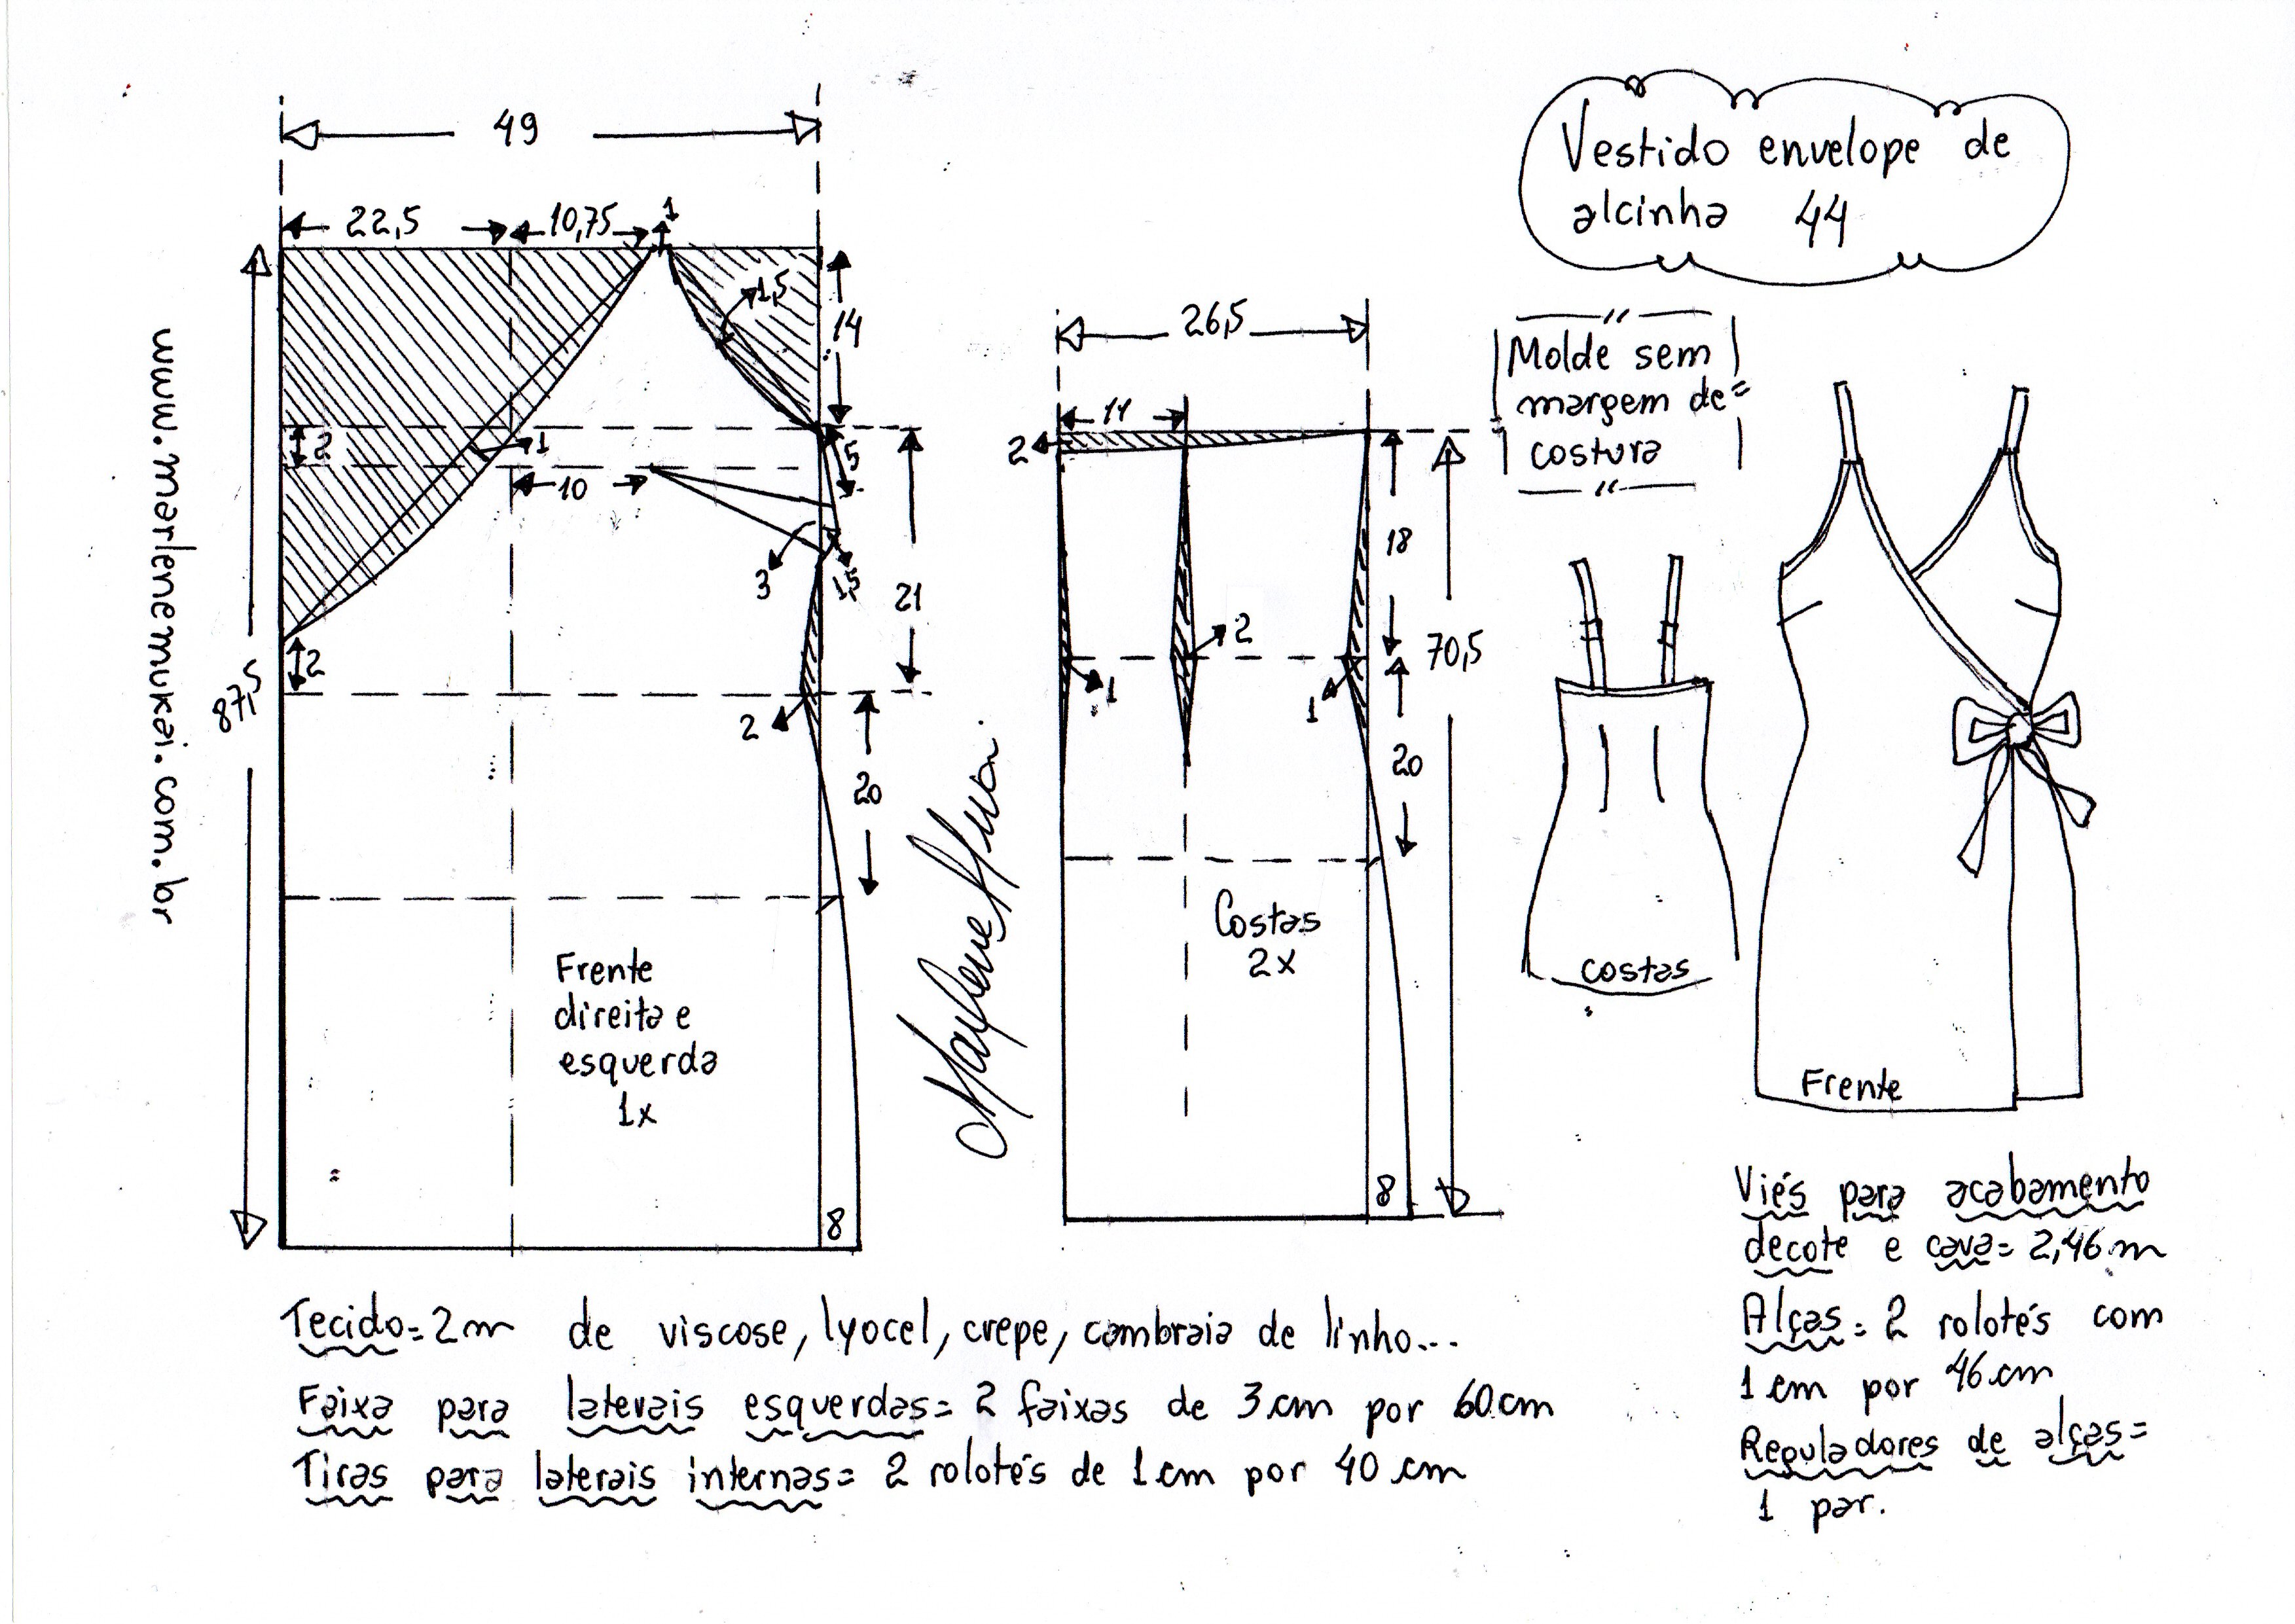 49
22,5
10,75
1
1,5
14
2
1
5
10
3
1,5
21
2
87,5
2
20
Frente
direita e
esquerda
1x
8
www.marlenemukai.com.br
26,5
11
2
18
70,5
2
1
1
20
Costas
2x
8
Vestido envelope de
alcinha 44
Molde sem
margem de=
costura
costas
Frente
Tecido=2m de viscose, lyocel, crepe, cambraia de linho...
Faixa para laterais esquerdas= 2 faixas de 3cm por 60cm
Tiras para laterais internas= 2 rolotés de 1cm por 40 cm
Viés para acabamento
decote e cava= 2,46m
Alças= 2 rolotés com
1cm por 46cm
Reguladores de alças=
1 par.